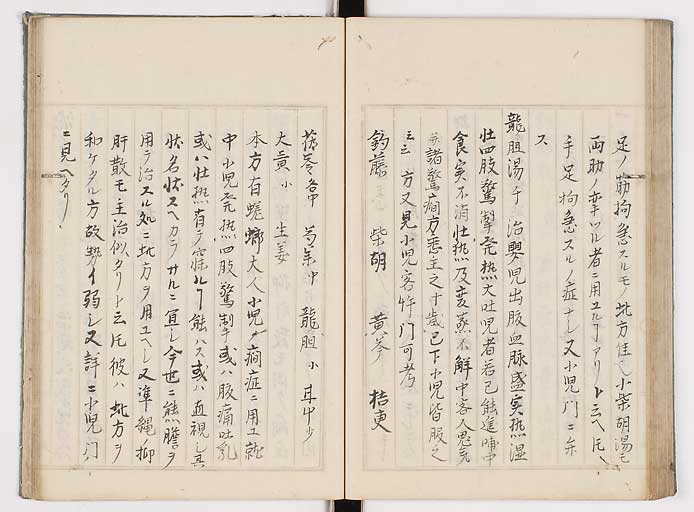 足ノ筋拘急スルモノ此方佳也小柴胡湯モ
両助ノ牽ツル者ニ用ユルヿアリト云ヘ𪜈
手足拘急スルノ症ナシ又小児門ニ弁
ス
龍胆湯千 治嬰児出腹血脉盛実热温
壮四肢驚掣発热大吐児者若已能進哺中
食実不消壮热及変蒸不解中客人鬼気
并諸驚癇方悉主之十歳已下小児皆服之
云云 方又見小児客忤門可考
釣藤 柴胡 黄芩 桔更
茯苓各中 芍薬中 龍胆小 甘中少
大黄小 生姜
本方有蜣蜋大人小児癇症ニ用ユ就
中小児発热四肢驚掣或ハ腹痛吐乳
或ハ壮热有テ寐ルヿ能ハス或ハ直視シ其
状名状スヘカラサルニ宜シ今世ニ熊膽ヲ
用テ治スル処ニ此方ヲ用ユヘシ又準縄抑
肝散モ主治似タリト云𪜈彼ハ此方ヲ
和ケタル方故勢イ弱シ又詳ニ小児門
ニ見ヘタリ